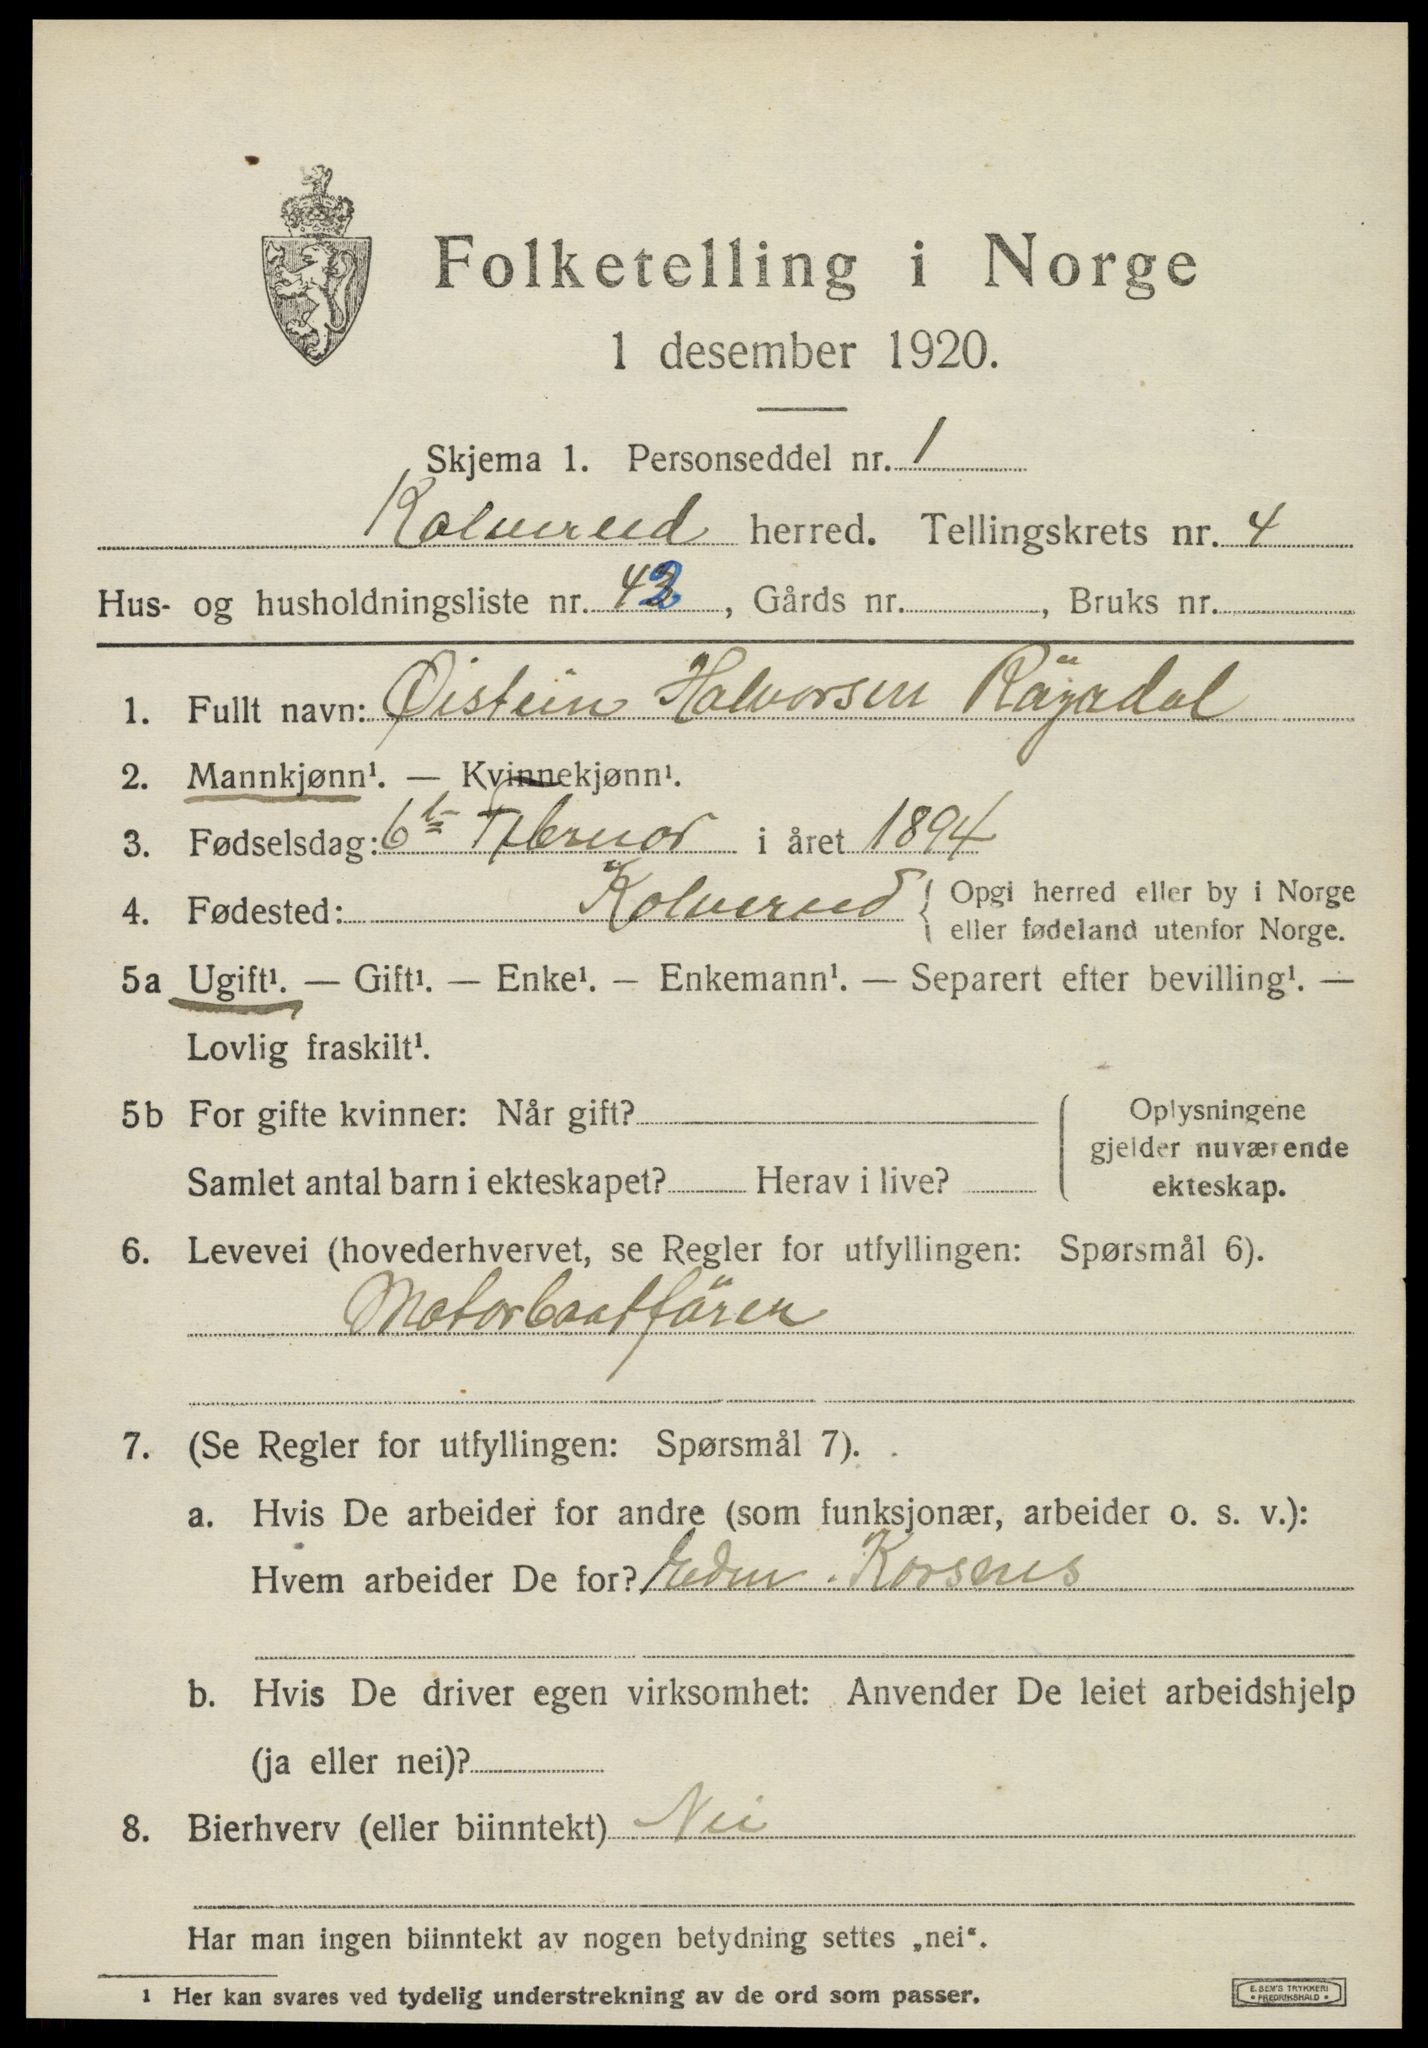 Folketelling i Norge
1 desember 1920.
Skjema 1. Personseddel nr. 1
Kolvereid herred. Tellingskrets nr. 4
Hus- og husholdningsliste nr. 42, Gårds nr. , Bruks nr.
1. Fullt navn: Øistein Halvorsen
2. Mannkjønn¹. — Kvinnekjønn¹.
3. Fødselsdag: 6te Februar i året 1894
4. Fødested: Kolvereid { Opgi herred eller by i Norge
eller fødeland utenfor Norge.
5a Ugift¹. — Gift¹. — Enke¹. — Enkemann¹. — Separert efter bevilling¹. —
Lovlig fraskilt¹.
5b For gifte kvinner: Når gift?
Samlet antal barn i ekteskapet? Herav i live?
Oplysningene
gjelder nuværende
ekteskap.
6. Levevei (hovederhvervet, se Regler for utfyllingen: Spørsmål 6).
Motorbaatförer
7. (Se Regler for utfyllingen: Spørsmål 7).
a. Hvis De arbeider for andre (som funksjonær, arbeider o. s. v.):
Hvem arbeider De for? Edm. Korsnes
b. Hvis De driver egen virksomhet: Anvender De leiet arbeidshjelp
(ja eller nei)?
8. Bierhverv (eller biinntekt) Nei
Har man ingen biinntekt av nogen betydning settes „nei“.
1 Her kan svares ved tydelig understrekning av de ord som passer.
E. SEM'S TRYKKERI
FREDRIKSHALD